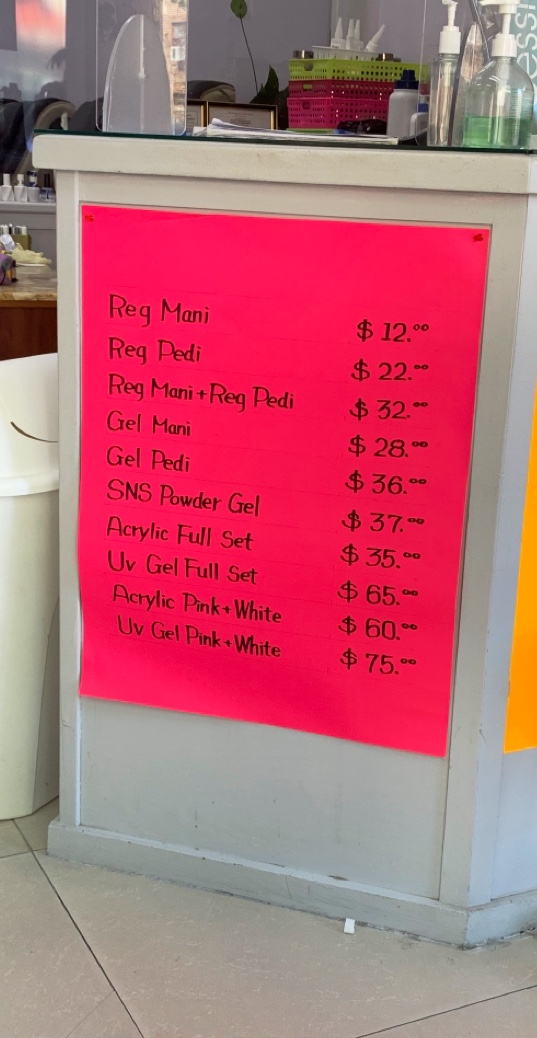 Reg Mani $12.00
Reg Pedi $22.00
Reg Mani+Reg Pedi $32.00
Gel Mani $28.00
Gel Pedi $36.00
SNS Powder Gel $37.00
Acrylic Full Set $35.00
Uv Gel Full Set $65.00
Acrylic Pink+White $60.00
Uv Gel Pink+White $75.00